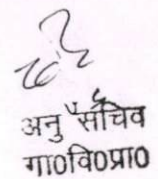 अनु सचिव
गा०वि०प्रा०